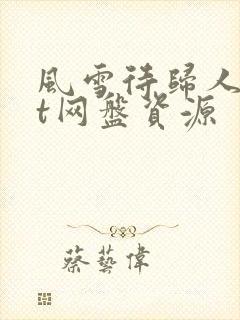 風雪待歸人
t网盤資源
蔡藝偉